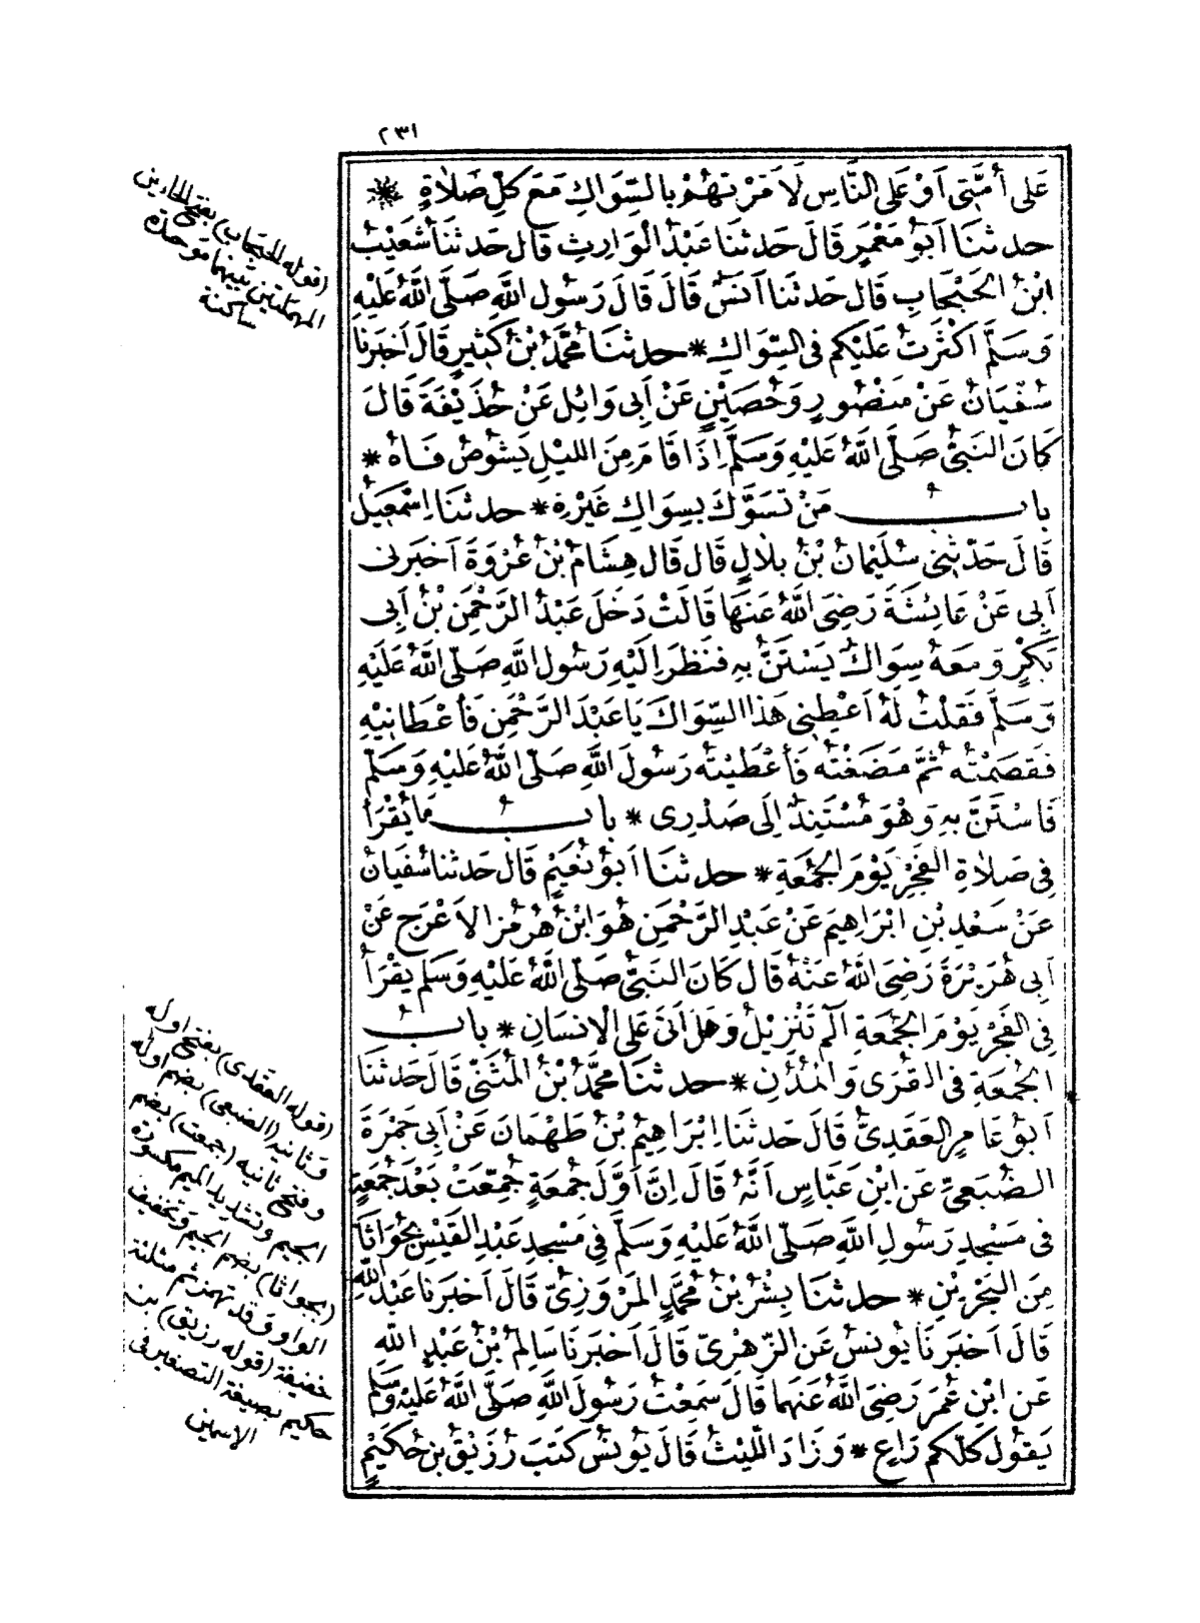 ٢٣١
عَلَى أُمَّتِي أَوْ عَلَى النَّاسِ لَأَمَرْتُهُمْ بِالسِّوَاكِ مَعَ كُلِّ صَلَاةٍ *
حدثنَا أَبُو مَعْمَرٍ قَالَ حَدثنَا عَبْدُ الْوَارِثِ قَالَ حَدثنَا شُعَيْبُ
ابْنُ الْحَبْحَابِ قَالَ حَدثنَا أَنَسٌ قَالَ قَالَ رَسُولُ اللَّهِ صَلَّى اللَّهُ عَلَيْهِ
وَسَلَّمَ أَكْثَرْتُ عَلَيْكُمْ فِي السِّوَاكِ * حدثنَا مُحَمَّدُ بْنُ كَثِيرٍ قَالَ أَخْبَرَنَا
سُفْيَانُ عَنْ مَنْصُورٍ وَحُصَيْنٍ عَنْ أَبِي وَائِلٍ عَنْ حُذَيْفَةَ قَالَ
كَانَ النَّبِيُّ صَلَّى اللَّهُ عَلَيْهِ وَسَلَّمَ إِذَا قَامَ مِنَ اللَّيْلِ يَشُوصُ فَاهُ *
بابُ مَنْ تَسَوَّكَ بِسِوَاكِ غَيْرِهِ * حدثنَا إِسْمَعِيلُ
قَالَ حَدَّثَنِي سُلَيْمَانُ بْنُ بِلَالٍ قَالَ قَالَ هِشَامُ بْنُ عُرْوَةَ أَخْبَرَنِي
أَبِي عَنْ عَائِشَةَ رَضِيَ اللَّهُ عَنْهَا قَالَتْ دَخَلَ عَبْدُ الرَّحْمَنِ بْنُ أَبِي
بَكْرٍ وَمَعَهُ سِوَاكٌ يَسْتَنُّ بِهِ فَنَظَرَ إِلَيْهِ رَسُولُ اللَّهِ صَلَّى اللَّهُ عَلَيْهِ
وَسَلَّمَ فَقُلْتُ لَهُ أَعْطِنِي هَذَا السِّوَاكَ يَا عَبْدَ الرَّحْمَنِ فَأَعْطَانِيهِ
فَقَصَمْتُهُ ثُمَّ مَضَغْتُهُ فَأَعْطَيْتُهُ رَسُولَ اللَّهِ صَلَّى اللَّهُ عَلَيْهِ وَسَلَّمَ
فَاسْتَنَّ بِهِ وَهُوَ مُسْتَنِدٌ إِلَى صَدْرِي * بابُ مَا يُقْرَأُ
فِي صَلَاةِ الْفَجْرِ يَوْمَ الْجُمُعَةِ * حدثنَا أَبُو نُعَيْمٍ قَالَ حَدثنَا سُفْيَانُ
عَنْ سَعْدِ بْنِ إِبْرَاهِيمَ عَنْ عَبْدِ الرَّحْمَنِ هُوَ ابْنُ هُرْمُزَ الْأَعْرَجِ عَنْ
أَبِي هُرَيْرَةَ رَضِيَ اللَّهُ عَنْهُ قَالَ كَانَ النَّبِيُّ صَلَّى اللَّهُ عَلَيْهِ وَسَلَّمَ يَقْرَأُ
فِي الْفَجْرِ يَوْمَ الْجُمُعَةِ الم تَنْزِيلُ وَهَلْ أَتَى عَلَى الْإِنْسَانِ * بابُ
الْجُمُعَةِ فِي الْقُرَى وَالْمُدُنِ * حدثنَا مُحَمَّدُ بْنُ الْمُثَنَّى قَالَ حَدثنَا
أَبُو عَامِرٍ الْعَقَدِيُّ قَالَ حَدثنَا إِبْرَاهِيمُ بْنُ طَهْمَانَ عَنْ أَبِي جَمْرَةَ
الضُّبَعِيِّ عَنِ ابْنِ عَبَّاسٍ أَنَّهُ قَالَ إِنَّ أَوَّلَ جُمُعَةٍ جُمِّعَتْ بَعْدَ جُمُعَةٍ
فِي مَسْجِدِ رَسُولِ اللَّهِ صَلَّى اللَّهُ عَلَيْهِ وَسَلَّمَ فِي مَسْجِدِ عَبْدِ الْقَيْسِ بِجُوَاثَا
مِنَ الْبَحْرَيْنِ * حدثنَا بِشْرُ بْنُ مُحَمَّدٍ الْمَرْوَزِيُّ قَالَ أَخْبَرَنَا عَبْدُ اللَّهِ
قَالَ أَخْبَرَنَا يُونُسُ عَنِ الزُّهْرِيِّ قَالَ أَخْبَرَنَا سَالِمُ بْنُ عَبْدِ اللَّهِ
عَنِ ابْنِ عُمَرَ رَضِيَ اللَّهُ عَنْهُمَا قَالَ سَمِعْتُ رَسُولَ اللَّهِ صَلَّى اللَّهُ عَلَيْهِ وَسَلَّمَ
يَقُولُ كُلُّكُمْ رَاعٍ * وَزَادَ اللَّيْثُ قَالَ يُونُسُ كَتَبَ رُزَيْقُ بْنُ حُكَيْمٍ
(قوله الحبحاب) بفتح الحاءين
المهملتين بينهما موحدة
ساكنة
(قوله العقدى) بفتح اوله
وثانيه (الضبعى) بضم اوله
وفتح ثانيه (جمعت) بضم
الجيم وتشديد الميم مكسورة
(بجواثا) بضم الجيم وتخفيف
الواو وقد تهمز ثم مثلثة
خفيفة (قوله رزيق) بن
حكيم بصيغة التصغير فى
الاسمين